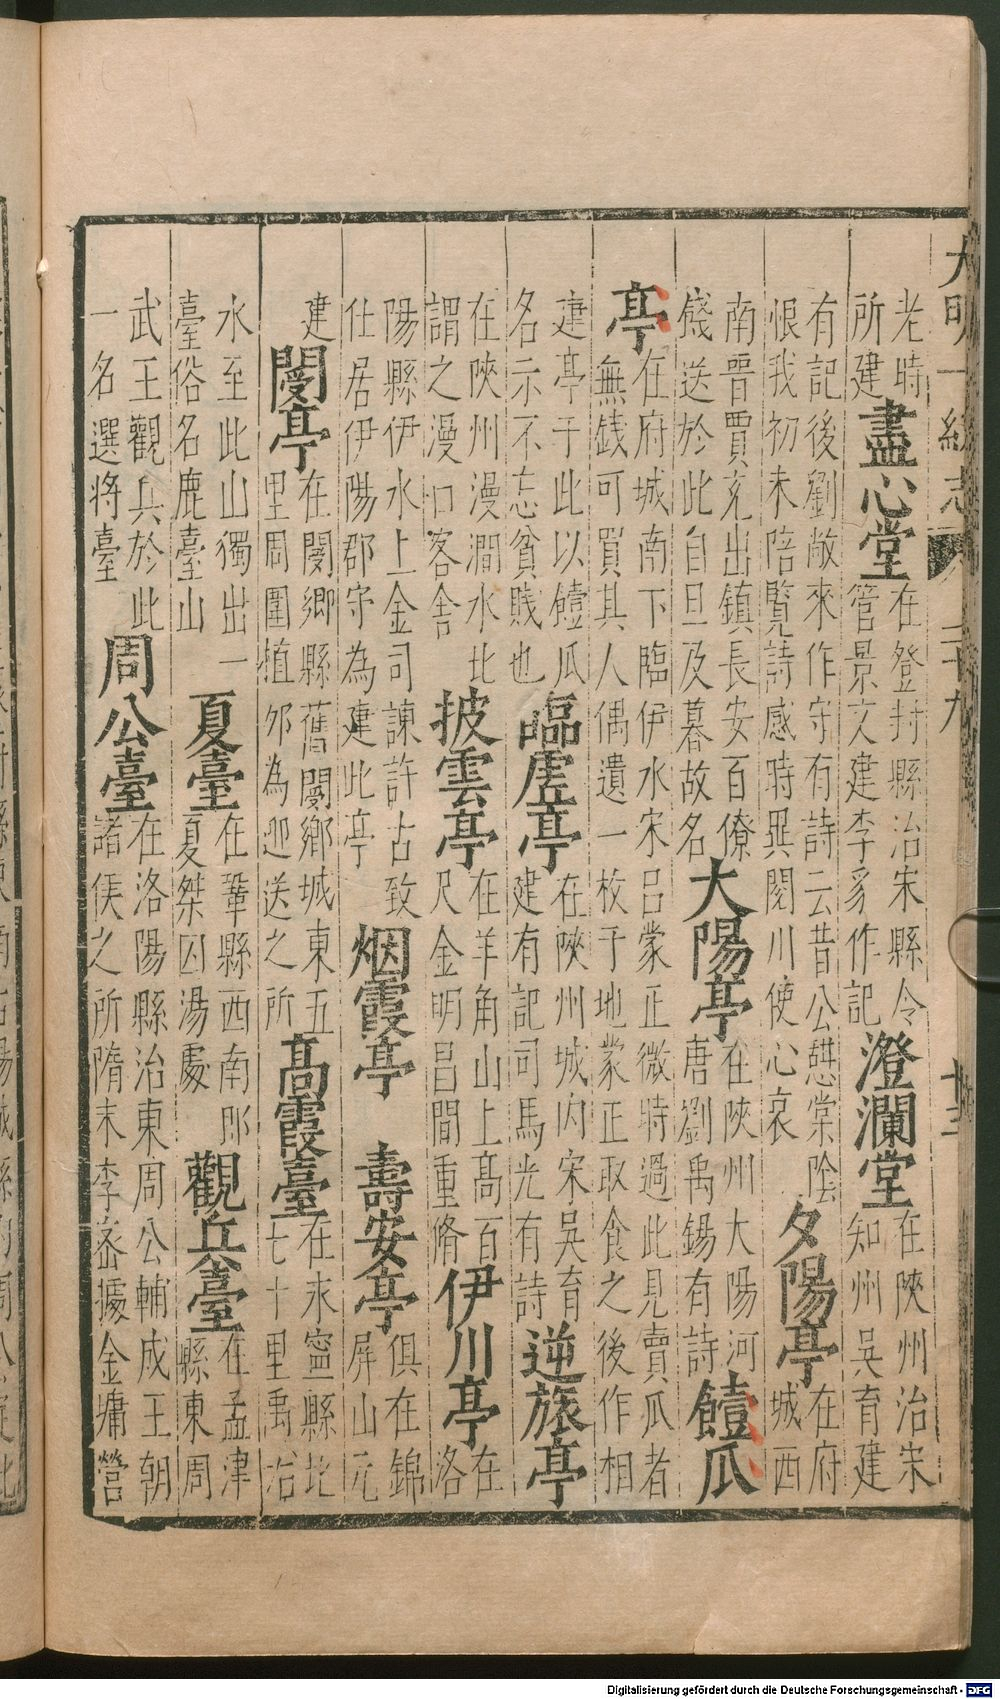 大明一統志 二十九 廿二
老時所建盡心堂在登封縣治宋縣令管景文建李豸作記澄瀾堂在陝州治宋知州吳育建
有記後劉敞來作守有詩云昔公憇棠陰恨我初未陪覽詩感時異閱川使心哀夕陽亭在府城西
南晉賈充出鎮長安百僚餞送於此自旦及暮故名大陽亭在陝州大陽河唐劉禹錫有詩饐瓜
亭在府城南下臨伊水宋呂蒙正微時過此見賣瓜者無錢可買其人偶遺一枚于地蒙正取食之後作相
建亭于此以饐瓜名示不忘貧賤也臨虛亭在陝州城内宋吳育建有記司馬光有詩逆旅亭
在陝州漫澗水北謂之漫口客舎披雲亭在羊角山上髙百尺金明昌間重脩伊川亭在洛
陽縣伊水上金司諫許古致仕居伊陽郡守為建此亭烟霞亭 壽安亭俱在錦屏山元
建閿亭在閿郷縣舊閿郷城東五里周圍植 為迎送之所髙霞臺在永寧縣北七十里禹治
水至此山獨出一臺俗名鹿臺山夏臺在鞏縣西南即夏桀囚湯處觀兵臺在孟津縣東周
武王觀兵於此一名選將臺周公臺在洛陽縣治東周公輔成王朝諸侯之所隋末李密據金墉營
Digitalisierung gefördert durch die Deutsche Forschungsgemeinschaft - DFG